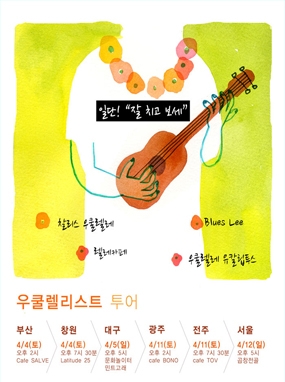 일단! "잘 치고 보세"
찰리스 우쿨렐레
Blues Lee
렐레하페
우쿨렐레 유칼립투스
우쿨렐리스트 투어
부산
4/4(토)
오후 2시
Cafe SALVE
창원
4/4(토)
오후 7시 30분
Latitude 25
대구
4/5(일)
오후 5시
문화놀이터
인트고래
광주
4/11(토)
오후 2시
cafe BONO
전주
4/11(토)
오후 7시 30분
cafe TOV
서울
4/12(일)
오후 5시
곰창전골